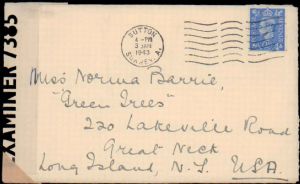 EXAMINER 7385
SUTTON
4 - PM
3 JAN
1943
SURREY. A.
Miss Norma Barrie,
"Green Trees"
220 Lakeville Road
Great Neck
Long Island, N.Y. USA.